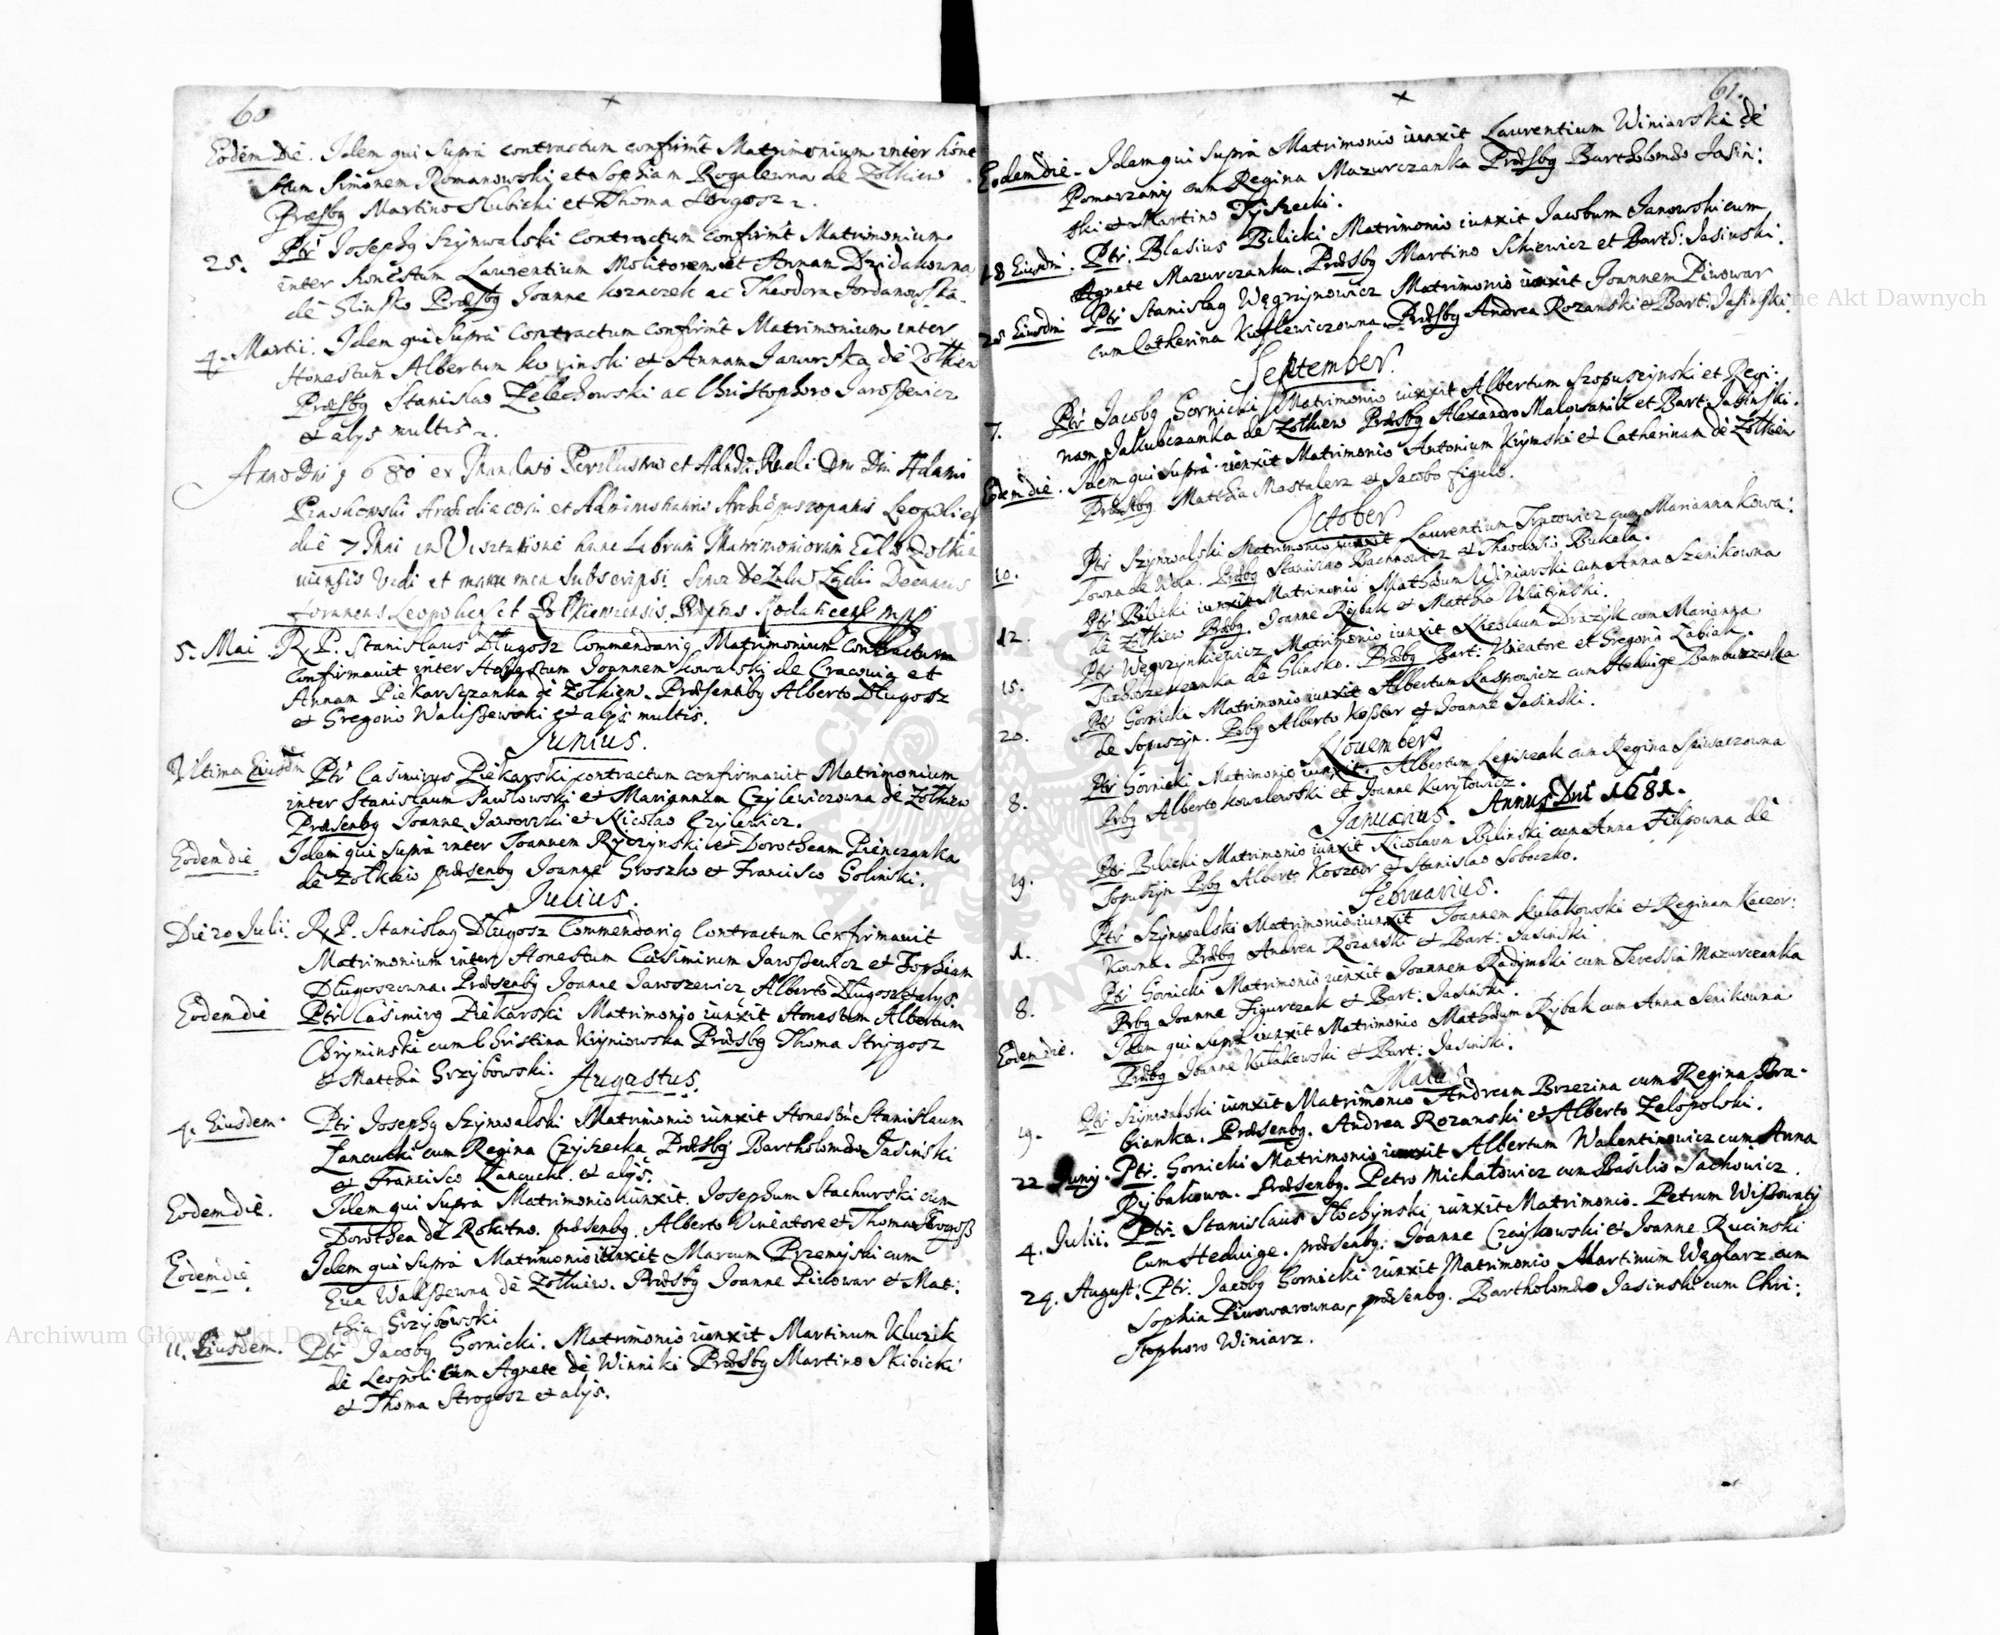 60
Eodem Die. Idem qui Supra contractum confirmit Matrimonium inter hone
stum Simonem Romanowski et Sophiam Rogalewna de Zolkiew
Præsbg Martino Skubicki et Thoma
25. Ptr Josephg Szynwalski contractum confirmit Matrimonium
inter honestum Laurentium Molitorem et Annam Dzidakowna
de Glinsko Præsbg Joanne Kozaczek ac Theodora Jordanowska
4. Martii. Idem qui Supra Contractum confirmit Matrimonium inter
Honestum Albertum et Annam Jaworska de Zolkiew
Præsbg Stanislao Zelechowski ac Christophoro Jaroszewicz
et alys multis.
Anno Dni 1680 ex Mandato Perillustris et Adndi Rndi Dni Dni Adami
Archidiaconi et Administratoris Archiepiscopatus Leopolien
die 7 Mai in Visitatione hunc Librum Matrimoniorum Eccl Zolkie
uiensis Vidi et manu mea Subscripsi Decanus
Leopoliens et Zolkieuiensis mpp
5. Mai. R. P. Stanislaus Długosz Commendarig Matrimonium Contractum
Confirmauit inter Honestum Joannem Kowalski de Cracouia et
Annam Piekarszanka de Zolkiew. Præsentibg Alberto Długosz
et Gregorio Waliszewski et alys multis.
Junius.
Ultima Eiusdm Ptr Casimirus Piekarski contractum confirmauit Matrimonium
inter Stanislaum Pawlowski et Mariannam Czyzewiczowna de Zolkiew
Præsenbg Joanne Jaworski et Nicolao Czylewicz.
Eodem die Idem qui Supra inter Joannem Ryczynski et Dorotheam Pienczanka
de Zolkiew præsenbg Joanne Groszko et Francisco Golinski.
Julius.
Die 20 Julii. R. P. Stanislag Długosz Commendarig Contractum Confirmauit
Matrimonium inter Honestum Casimirum Jaroszewicz et Sophiam
Długoszowna. Præsenbg Joanne Jaroszewicz Alberto Długosz et alys.
Eodem die Ptr Casimirg Piekarski Matrimonio iunxit Honestum Albertum
Chryminski cum Christina Kryniowska Præsbg Thoma Strygosz
et Matthia Grzybowski. Augustus.
4. Eiusdem. Ptr Josephg Szynwalski Matrimonio iunxit Honestu Stanislaum
Łancucki cum Regina Czyszecka Præsbg Bartholomæo Jasinski
et Francisco Łancucki et alys.
Eodem die. Idem qui Supra Matrimonio iunxit. Josephum Stachurski cum
Dorothea de Rokitno. præsenbg. Alberto Vineatore et Thoma Strogosz
Eodem die. Idem qui Supra Matrimonio iunxit Marcum Przemyski cum
Eua Waliszewna de Zolkiew. Præsbg Joanne Piwowar et Mat:
thia Grzybowski
11. Eiusdem. Ptr Jacobg Gornicki. Matrimonio iunxit Martinum Kluzik
de Leopoli cum Agnete de Winniki Præsbg Martino Skibicki
et Thoma Strogosz et alys.
61.
Eodem die. Idem qui Supra Matrimonio iunxit Laurentium Winiarski de
Pomarzany cum Regina Mazurczanka Præsbg Bartholomæo Jasin:
ski et Martino Tyszecki.
18 Eiusdm. Ptr. Blasius Bilicki Matrimonio iunxit Jacobum Janowski cum
Agnete Mazurczanka. Præsbg Martino Schiewicz et Barth: Jasinski.
20 Eiusdm Ptr Stanislag Węgrzynowicz Matrimonio iunxit Joannem Piwowar
cum Catherina Præsbg Andrea Rozanski et Bart: Jasinski.
September.
7. Ptr Jacobg Gornicki Matrimonio iunxit Albertum Szopuszynski et Regi:
nam Jakubczanka de Zolkiew Præsbg Alexandro et Bart: Jasinski.
Eodem die. Idem qui Supra iunxit Matrimonio Antonium Krymski et Catherinam de Zolkiew
Præsbg. Matthia Mastalerz et Jacobo figulo.
October
10. Ptr Szynwalski Matrimonio iunxit Laurentium Tracowicz cum Marianna Kowa:
lowna de Wola. Præbg Stanislao Bachnowicz et Theodosio Bukala.
12. Ptr Bilicki iunxit Matrimonio Mathæum Winiarski cum Anna Szenikowna
de Zolkiew Præbg. Joanne Rybak et Matthia
15. Ptr Węgrzynkiewicz Matrimonio iunxit Nicolaum Druzik cum Marianna
de Glinsko. Præsbg Bart: Vineatore et Gregorio Łabiak.
20. Ptr Gornicki Matrimonio iunxit Albertum Kasprowicz cum Heduige Bamburzanka
de Sopuszyn. Præbg Alberto Koszter et Joanne Jasinski.
Nouember
8. Ptr Gornicki Matrimonio iunxit. Albertum Lepiszak cum Regina Spiwaczowna
Præbg Alberto Kowalewski et Joanne Kuryłowicz.
Januarius. Annus Dni 1681.
19. Ptr Bilicki Matrimonio iunxit Nicolaum Bilinski cum Anna Filipowna de
Sopuszyn Præbg Alberto Koszter et Stanislao Sobeczko.
Februarius.
1. Ptr Szynwalski Matrimonio iunxit Joannem Kułakowski et Reginam Kaczor:
kowna. Præbg Andrea Rozanski et Bart: Jasinski
8. Ptr Gornicki Matrimonio iunxit Joannem Radymski cum Teressia Mazurczanka
Præbg Joanne Figurczak et Bart: Jasinski.
Eodem die. Idem qui Supra iunxit Matrimonio Mathæum Rybak cum Anna Senikowna
Præbg Joanne Kułakowski et Bart: Jasinski.
19. Ptr Szynwalski iunxit Matrimonio Andream Brzezina cum Regina Bra-
cianka. Præsenbg. Andrea Rozanski et Alberto Zelopolski.
22 Junij. Ptr. Gornicki Matrimonio iunxit Albertum Walentinowicz cum Anna
Rybakowa. Præsenbg. Petro Michałowicz cum Basilio Sachowicz.
4. Julii. Ptr. Stanislaus Słochynski iunxit Matrimonio. Petrum Wiszowaty
Cum Heduige. præsenbg: Joanne Czaykowski et Joanne Rucinski
24. August: Ptr. Jacobg Gornicki iunxit Matrimonio Martinum Węglarz cum
Sophia Piwowarowna, præsenbg. Bartholomæo Jasinski cum Chri:
stophoro Winiarz.
Archiwum Główne Akt Dawnych